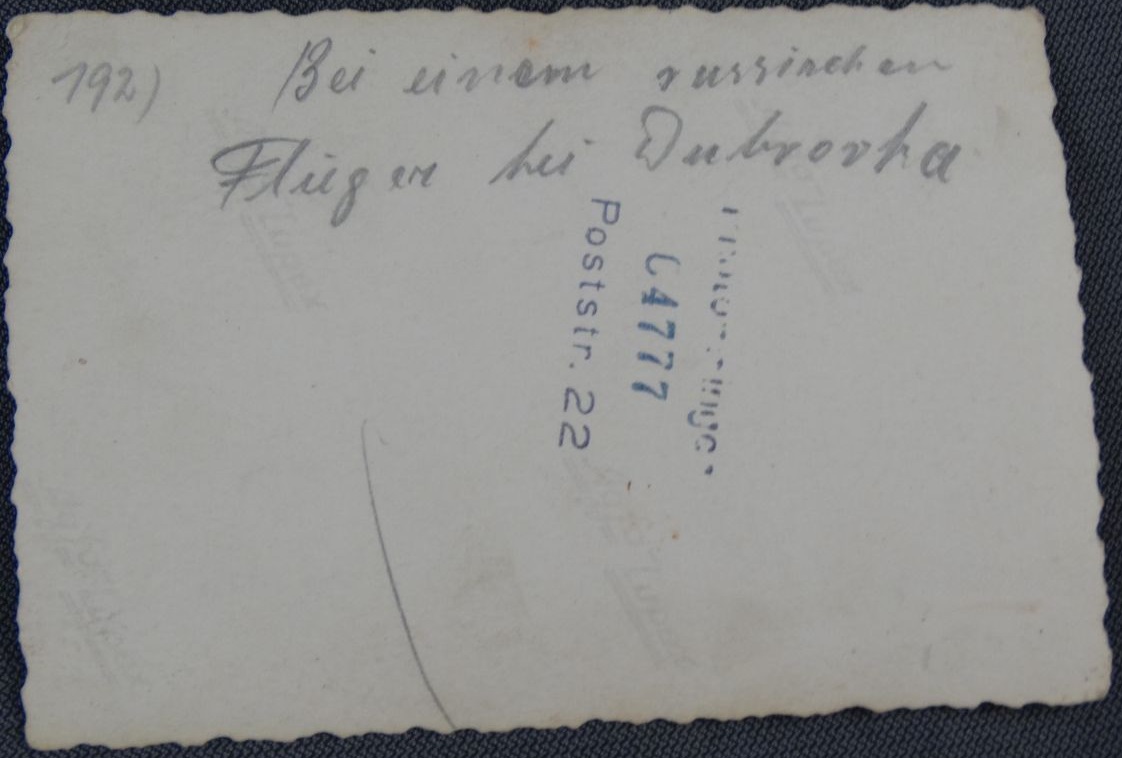 192) Bei einem russischen
Flieger bei Dubrovka
C4777
Poststr. 22